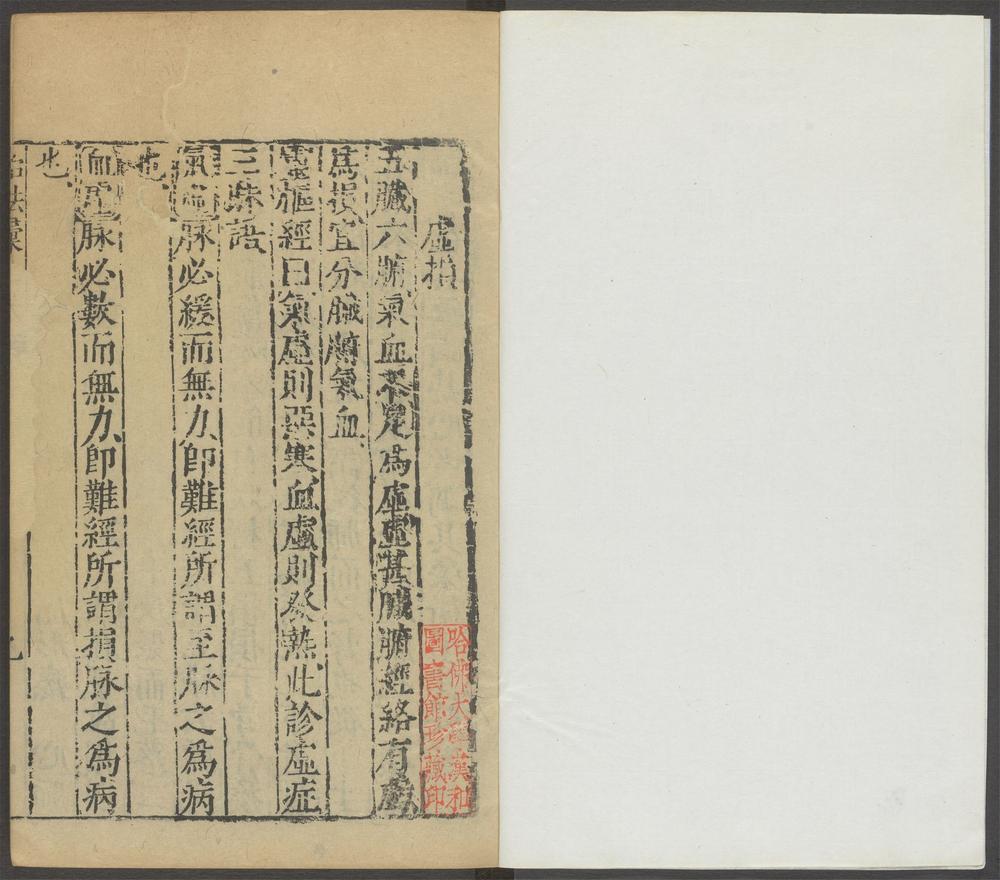 虛損
五臟六腑氣血不足爲虛虛甚臟腑經絡有虧
爲損宜分臟腑氣血
靈樞經曰氣虛則惡寒血虛則發熱此診虛症
三昧語
氣虛脉必緩而無力即難經所謂至脉之爲病
也
血虛脉必數而無力即難經所謂損脉之爲病
也
治法彙
哈佛大學漢和
圖書館珍藏印